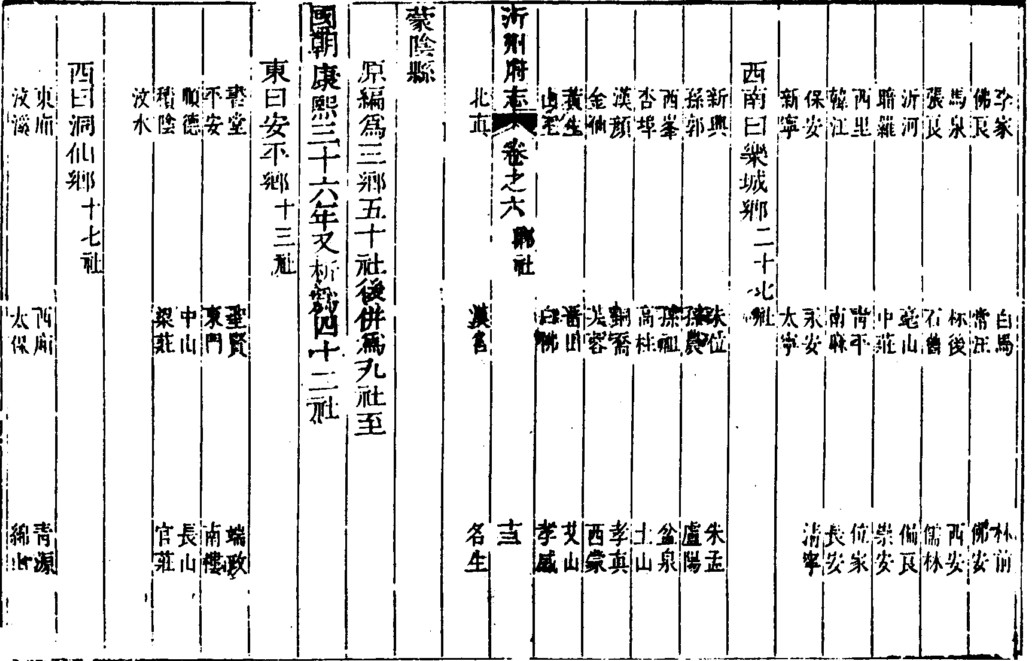 李家 白馬 林前
佛艮 常汪 佛安
馬泉 林後 西安
張艮 石舊 儒林
沂河 亳山 備艮
暗羅 中莊 崇安
西里 位家
韓江 南麻 長安
保安 永安 清寧
新寧 太寧
西南曰樂城鄉二十九社
新興 朱位 朱孟
孫郭 孫農 盧陽
西峯 孫祖 盆泉
杏埠 高柱 土山
漢頗 孝真
金仙 芙蓉 西蒙
黃生 艾山
白佛 孝感
沂州府志 卷之六 鄉社 十三
漢宮 名生
蒙陰縣
原編爲三鄉五十社後併爲九社至
國朝康熙三十六年又析爲四十二社
東曰安平鄉十三社
聖賢 端政
平安 東門 南樓
順德 中山 長山
積陰 梁莊 官莊
汶水
西曰洞仙鄉十七社
東廟 西廟 青源
汶溪 太保 綿山